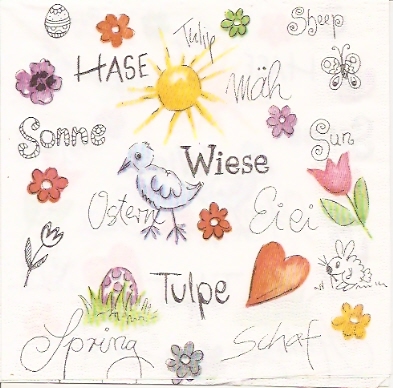 Tulip
Sheep
HASE
Mäh
Sonne
Sun
Wiese
Ostern
Eiei
Tulpe
Spring
Schaf